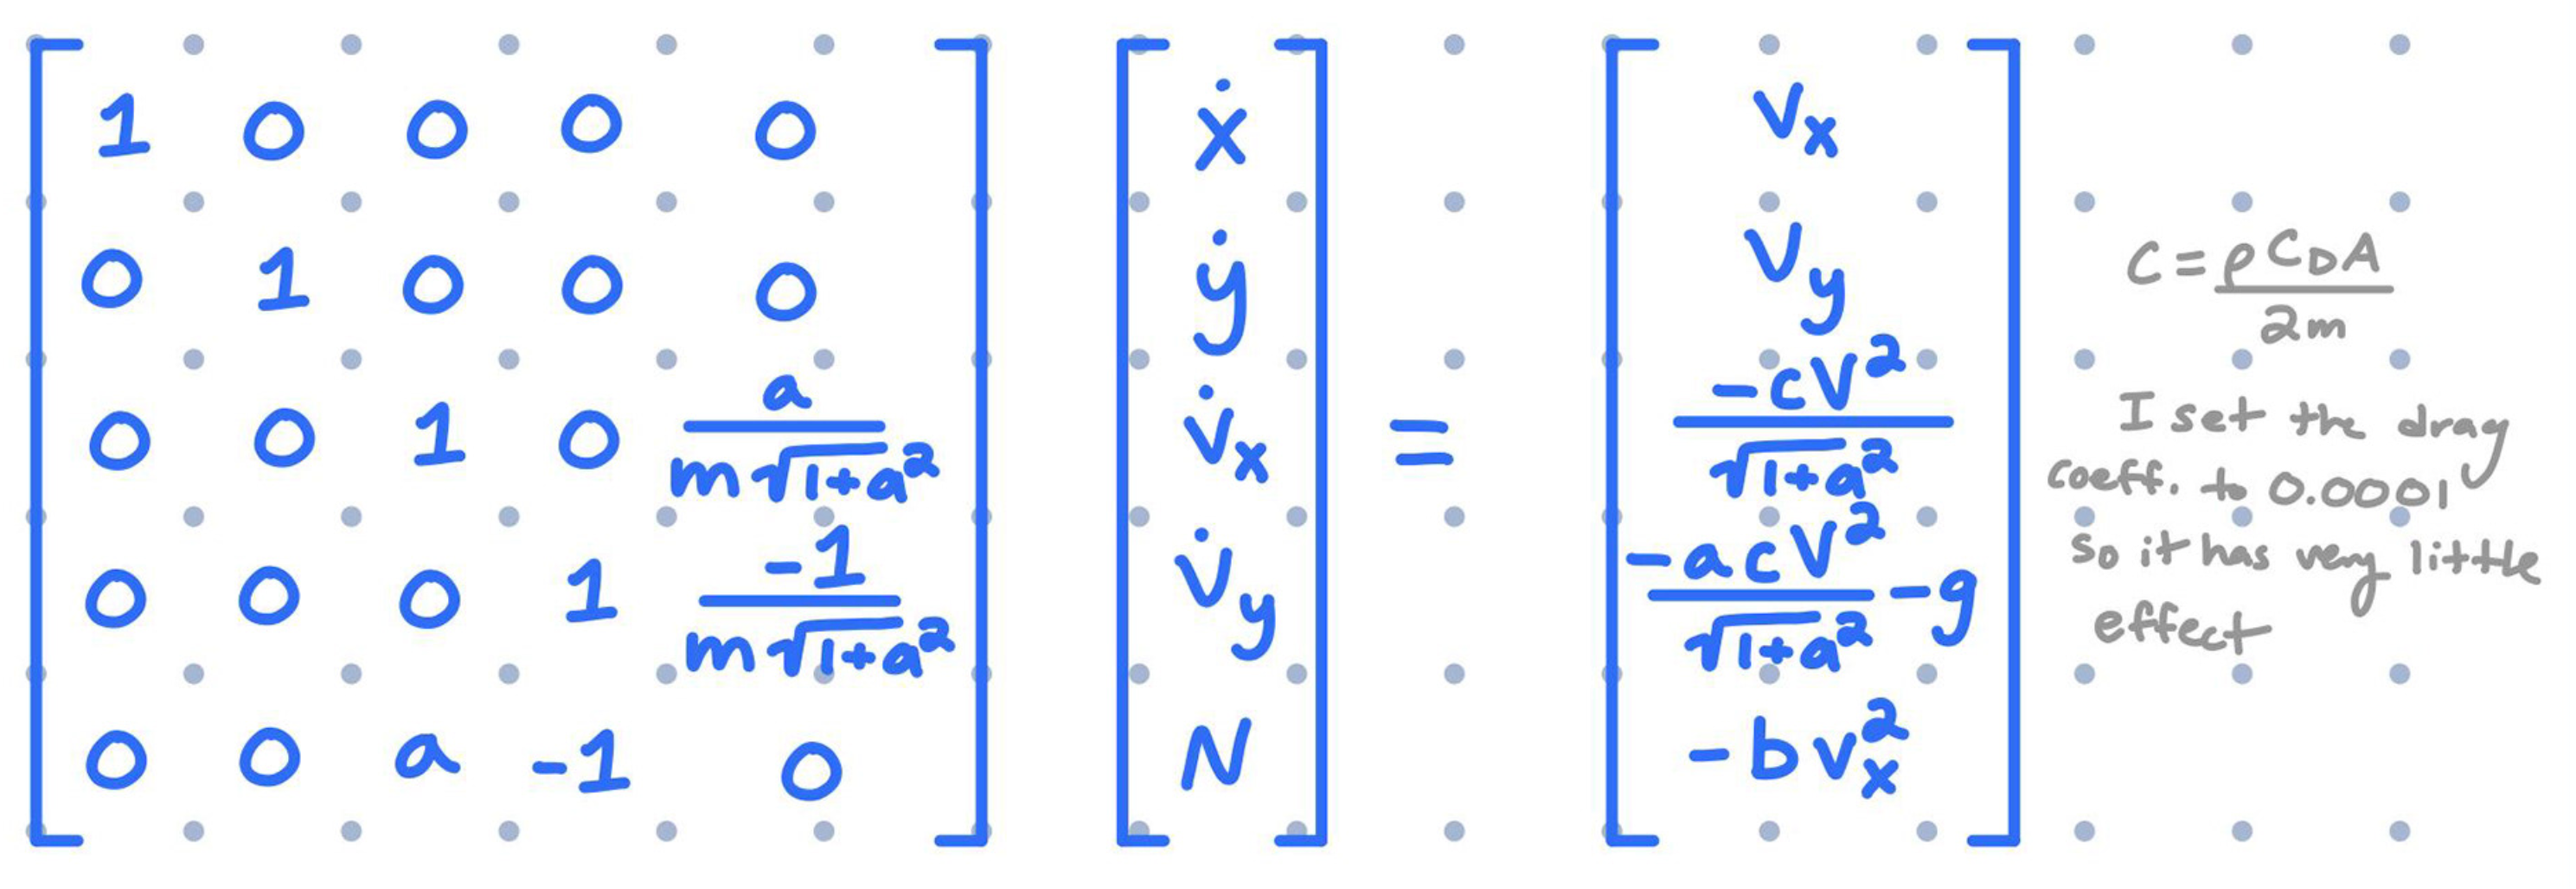 [1 0 0 0 0; 0 1 0 0 0; 0 0 1 0 a/(m√(1+a²)); 0 0 0 1 -1/(m√(1+a²)); 0 0 a -1 0] [ẋ; ẏ; v̇ₓ; v̇_y; N] = [vₓ; v_y; -cV²/√(1+a²); -acV²/√(1+a²) - g; -bvₓ²]
C = ρC_DA/2m
I set the drag
coeff. to 0.0001
so it has very little
effect